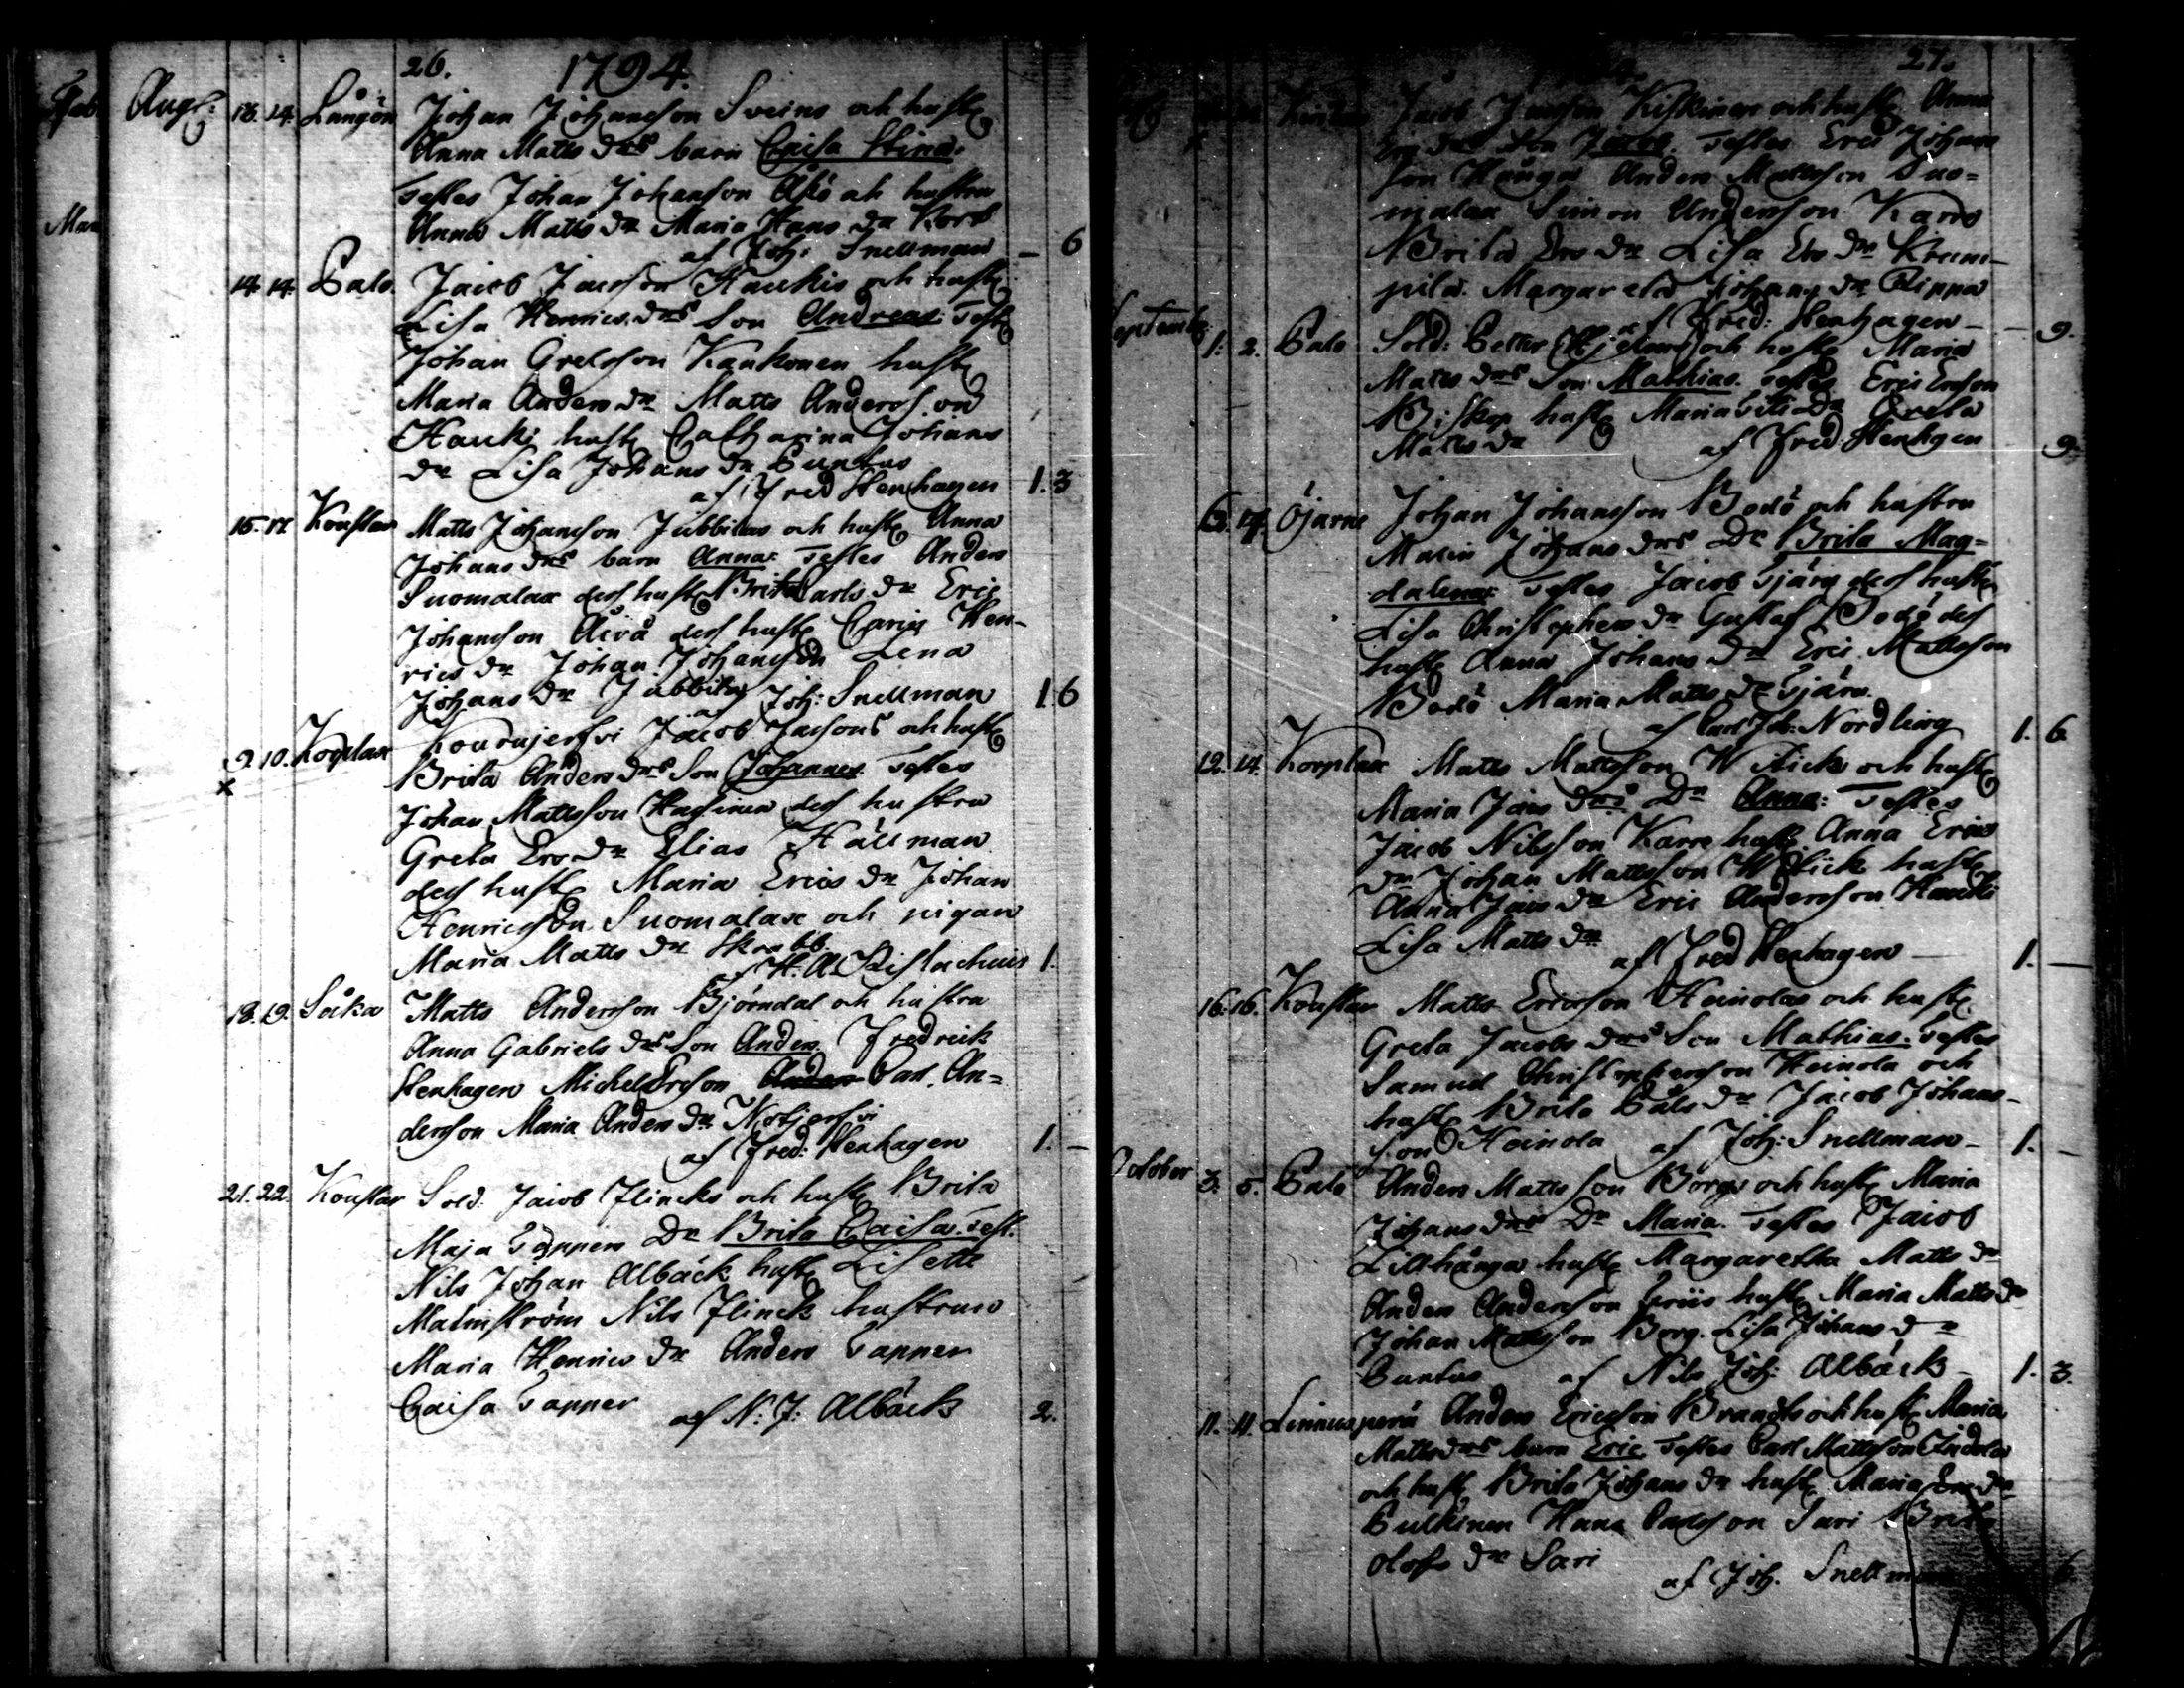 26. 1794.
Aug: 13. 14. Långön Johan Johansson Sveins och hustr
Anna Matts drs barn Caisa Stina.
Testes Johan Johansson och hustru
Anna Matts dr Maria Hans dr Kors
af Joh: Snellman — 6
14. 14. Palo. Jacob Jacsson Haukis och hustr
Lisa Henrics drs Son Andreas. Test
Johan Grelsson Kaukonen hustr
Maria Anders dr Matts Anderss. on
Hauki hustr Catharina Johans
dr Lisa Johans dr Puntus
af Fred Stenhagen 1. 3
15. 17. Kouflax Matts Johansson Jubbilas och hustr Anna
Johans drs barn Anna: Testes Anders
Suomalax des hustr Brita Carls dr Eric
Johansson des hustr Carin Hen-
rics dr Johan Johansson Lena
Johans dr Jubbila Joh: Snellman 1 6
9. 10. Korplax Jacob Jacsons och hustr
x Brita Anders drs Son Johannes Testes
Johan Mattsson des hustru
Greta Ers dr Elias Hällman
des hustr Maria Erics dr Johan
Henricsson Suomalax och pigan
Maria Matts dr Skrabb.
af H. A. 1.
18. 19. Såka Matts Andersson Björndal och hustru
Anna Gabriels drs Son Anders. Fredrick
Stenhagen Michel Ersson Anders Carl. An=
dersson Maria Anders dr
af Fred: Stenhagen 1. —
21. 22. Kouflax Sold: Jacob Flincks och hustr Brita
Maja Tappers Dr Brita Caisa. Test.
Nils Johan Albäck hustr Lisette
Malmström Nils Flinck hustrun
Maria Henrics dr Anders Tapper
Caisa Tapper af N: J: Albäck 2.
27.
Jacob Jacsson och hustr Anna
drs Son Jacob. Testes Eric Johans
son Hänga Anders Mattsson Suo=
malax Simon Andersson Karro
Brita Ers dr Lisa Ers dr Krum-
pila. Margareta Johans dr Rippa
af Fred: Stenhagen — 9.
September 1. 2. Palo Sold: Petter och hustr Maria
Matts drs Son Mathias. Testes Eric Ersson
Biskop hustr Maria dr Greta
Matts dr af Fred Stenhagen 9
6. 14. Öjarne Johan Johansson Bodö och hustru
Malin Johans drs Dr Brita Mag=
dalena: Testes Jacob Tjärn des hustr
Lisa Christophers dr Gustaf Bodö des
hustr Anna Johans dr Eric Mattsson
Bodö Maria Matts dr Tjärn.
af Carl Joh: Nordling 1. 6
12. 14. Korplax Matts Mattsson och hustr
Maria Jacs drs Dr Anna: Testes
Jacob Nilsson Karre hustr Anna Erics
dr Johan Mattsson hustr
Anna Jacs dr Eric Andersson Hauki
Lisa Matts dr
af Fred Stenhagen — 1. —
16. 16. Kouflax Matts Ericsson Heinolas och hustr
Greta Jacobs drs Son Mathias. Testes
Samuel Christophersson Heinola och
hustr Brita Påls dr Jacob Johans-
son Heinola af Joh: Snellman — 1. —
October 3. 5. Palo Anders Matts son Borgs och hustr Maria
Johans drs Dr Maria. Testes Jacob
Lillhänga hustr Margaretha Matts dr
Anders Andersson hustr Maria Matts dr
Johan Mattsson Borg. Lisa Johans dr
Puntus af Nils Joh: Albäck — 1. 3.
11. 11. Linnusperä Anders Ericsson Brands och hustr Maria
Matts drs barn Eric Testes Carl Mattsson
och hustr Brita Johans dr hustr Maria Erics dr
Pulkinen Hans Carlsson Sari Brita
Olofs dr Sari
af Joh. Snellman